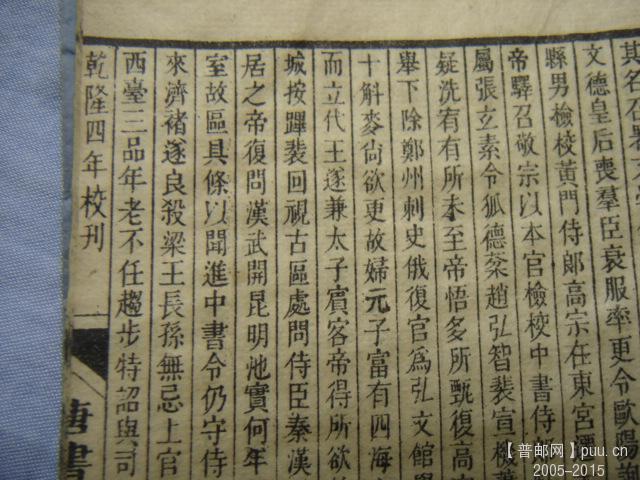 其名召
文德皇后喪羣臣衰服率更令歐陽詢
縣男檢校黃門侍郎高宗在東宮
帝驛召敬宗以本官檢校中書侍郎
屬張玄素令狐德棻趙弘智裴宣機
疑洗宥有所未至帝悟多所甄復高
舉下除鄭州刺史俄復官爲弘文館學
十斛麥尙欲更故婦天子富有四海
而立代王遂兼太子賓客帝得所欲
城按蹕裴回視古區處問侍臣秦漢
居之帝復問漢武開昆明池實何年
室故區具條以聞進中書令仍守侍
來濟褚遂良殺梁王長孫無忌上官
西臺三品年老不任趨步特詔與司
乾隆四年校刊
唐書
【普邮网】puu.cn
2005-2015